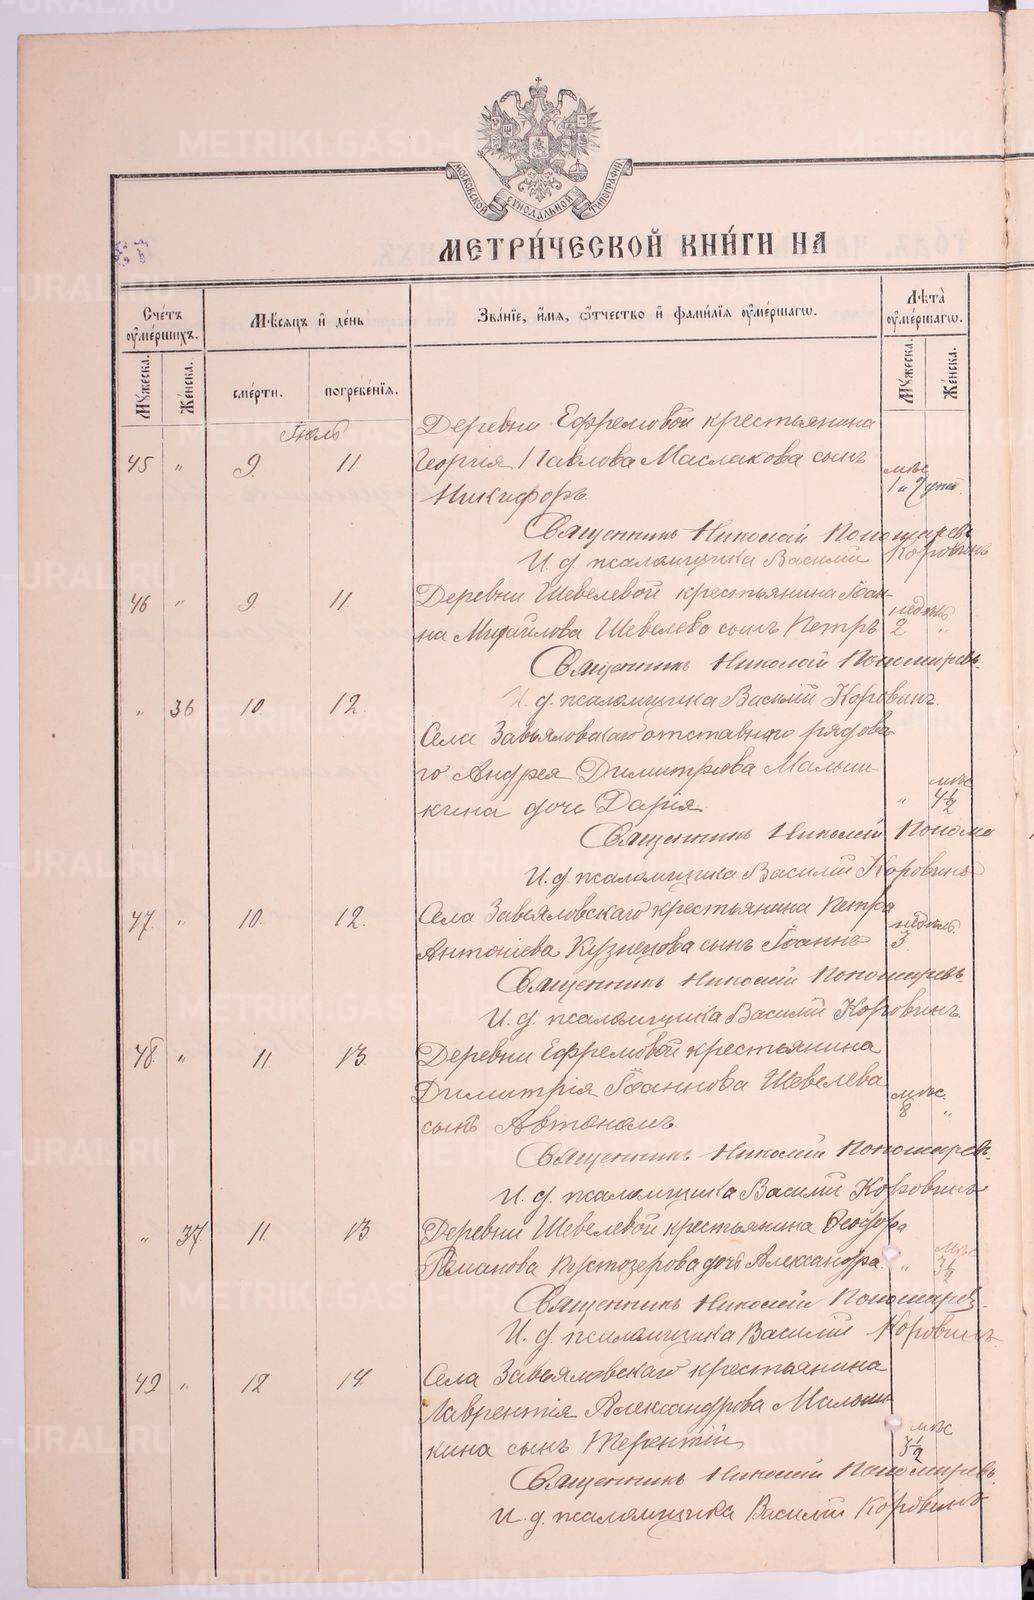 METRIKI.GASO-URAL.RU
МОСКОВСКОЙ СѴНОДАЛЬНОЙ ТИПОГРАФІИ
МЕТРИ́ЧЕСКОЙ КНИ́ГИ НА
Сче́тъ оуме́ршихъ.
Мѣсяцъ и день
Зва́нїе, и́мя, о́тчество и фами́лїя оуме́ршагѡ.
Лѣта̀ оуме́ршагѡ.
Мужеска.
Же́нска.
сме́рти.
погребе́нїѧ.
Мужеска.
Же́нска.
Іюль
Деревни Ефремовой крестьянина
45 " 9. 11 Георгія Павлова Маслакова сынъ мѣс
Никифоръ. 1 и 7 дней.
Священникъ Николай Пономаревъ
И. д. псаломщика Василій Коровинъ
46 " 9. 11. Деревни Шевелевой крестьянина Іоан- недѣль
на Михайлова Шевелева сынъ Петръ 2 "
Священникъ Николай Пономаревъ.
" 36 10. 12. И. д. псаломщика Василій Коровинъ.
Села Завьяловскаго отставного рядова-
го Андрея Димитріева Малыш- мѣс
кина дочь Дарія " 4½
Священникъ Николай Понома
И. д. псаломщика Василій Коровинъ
47. " 10. 12. Села Завьяловскаго крестьянина Петра недѣль.
Антоніева Кузнецова сынъ Іоаннъ 3.
Священникъ Николай Пономаревъ.
И. д. псаломщика Василій Коровинъ
48 " 11. 13. Деревни Ефремовой крестьянина
Димитрія Іоаннова Шевелева мѣс.
сынъ Автономъ 8 "
Священникъ Николай Пономарев.
И. д. псаломщика Василій Коровинъ
" 37 11. 13. Деревни Шевелевой крестьянина Ѳеодора мѣс
Романова Пустозерова дочь Александра. " 3½
Священникъ Николай Пономарев.
И. д. псаломщика Василій Коровинъ
49 " 12 14. Села Завьяловскаго крестьянина
Лаврентія Александрова Малыш- мѣс
кина сынъ Терентій 3½
Священникъ Николай Пономаревъ.
И. д. псаломщика Василій Коровинъ